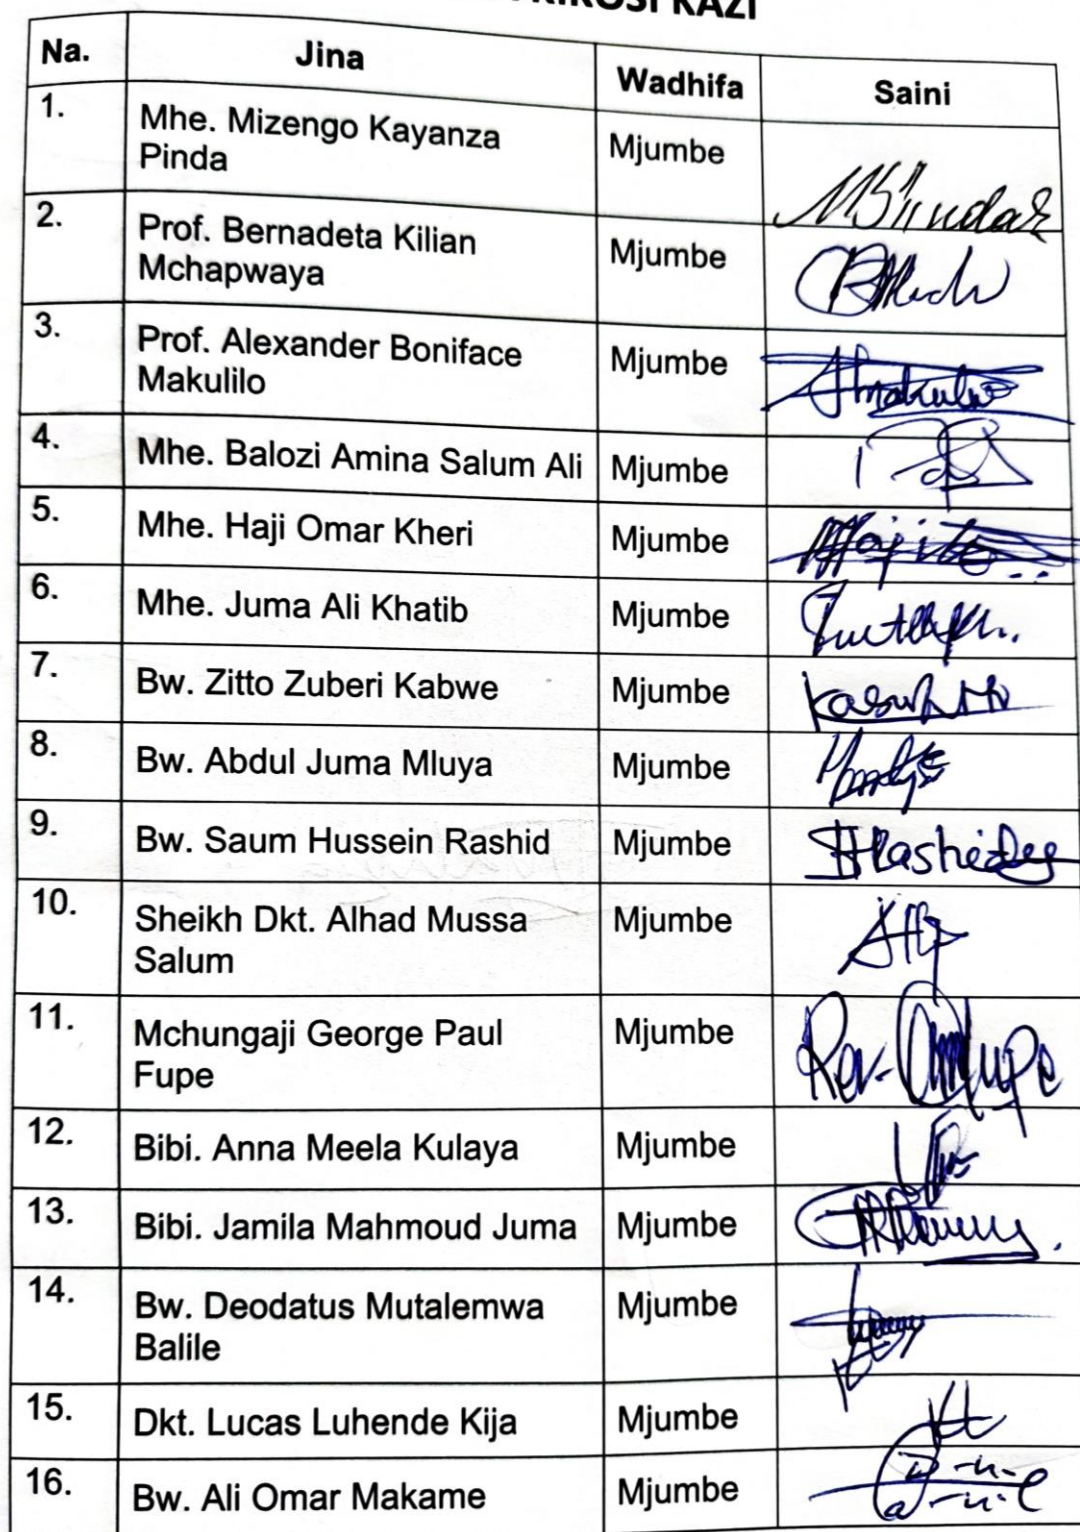 KIKOSI KAZI
Na. Jina Wadhifa Saini
1. Mhe. Mizengo Kayanza Mjumbe
Pinda
2. Prof. Bernadeta Kilian Mjumbe
Mchapwaya
3. Prof. Alexander Boniface Mjumbe
Makulilo
4. Mhe. Balozi Amina Salum Ali Mjumbe
5. Mhe. Haji Omar Kheri Mjumbe
6. Mhe. Juma Ali Khatib Mjumbe
7. Bw. Zitto Zuberi Kabwe Mjumbe
8. Bw. Abdul Juma Mluya Mjumbe
9. Bw. Saum Hussein Rashid Mjumbe
10. Sheikh Dkt. Alhad Mussa Mjumbe
Salum
11. Mchungaji George Paul Mjumbe
Fupe
12. Bibi. Anna Meela Kulaya Mjumbe
13. Bibi. Jamila Mahmoud Juma Mjumbe
14. Bw. Deodatus Mutalemwa Mjumbe
Balile
15. Dkt. Lucas Luhende Kija Mjumbe
16. Bw. Ali Omar Makame Mjumbe